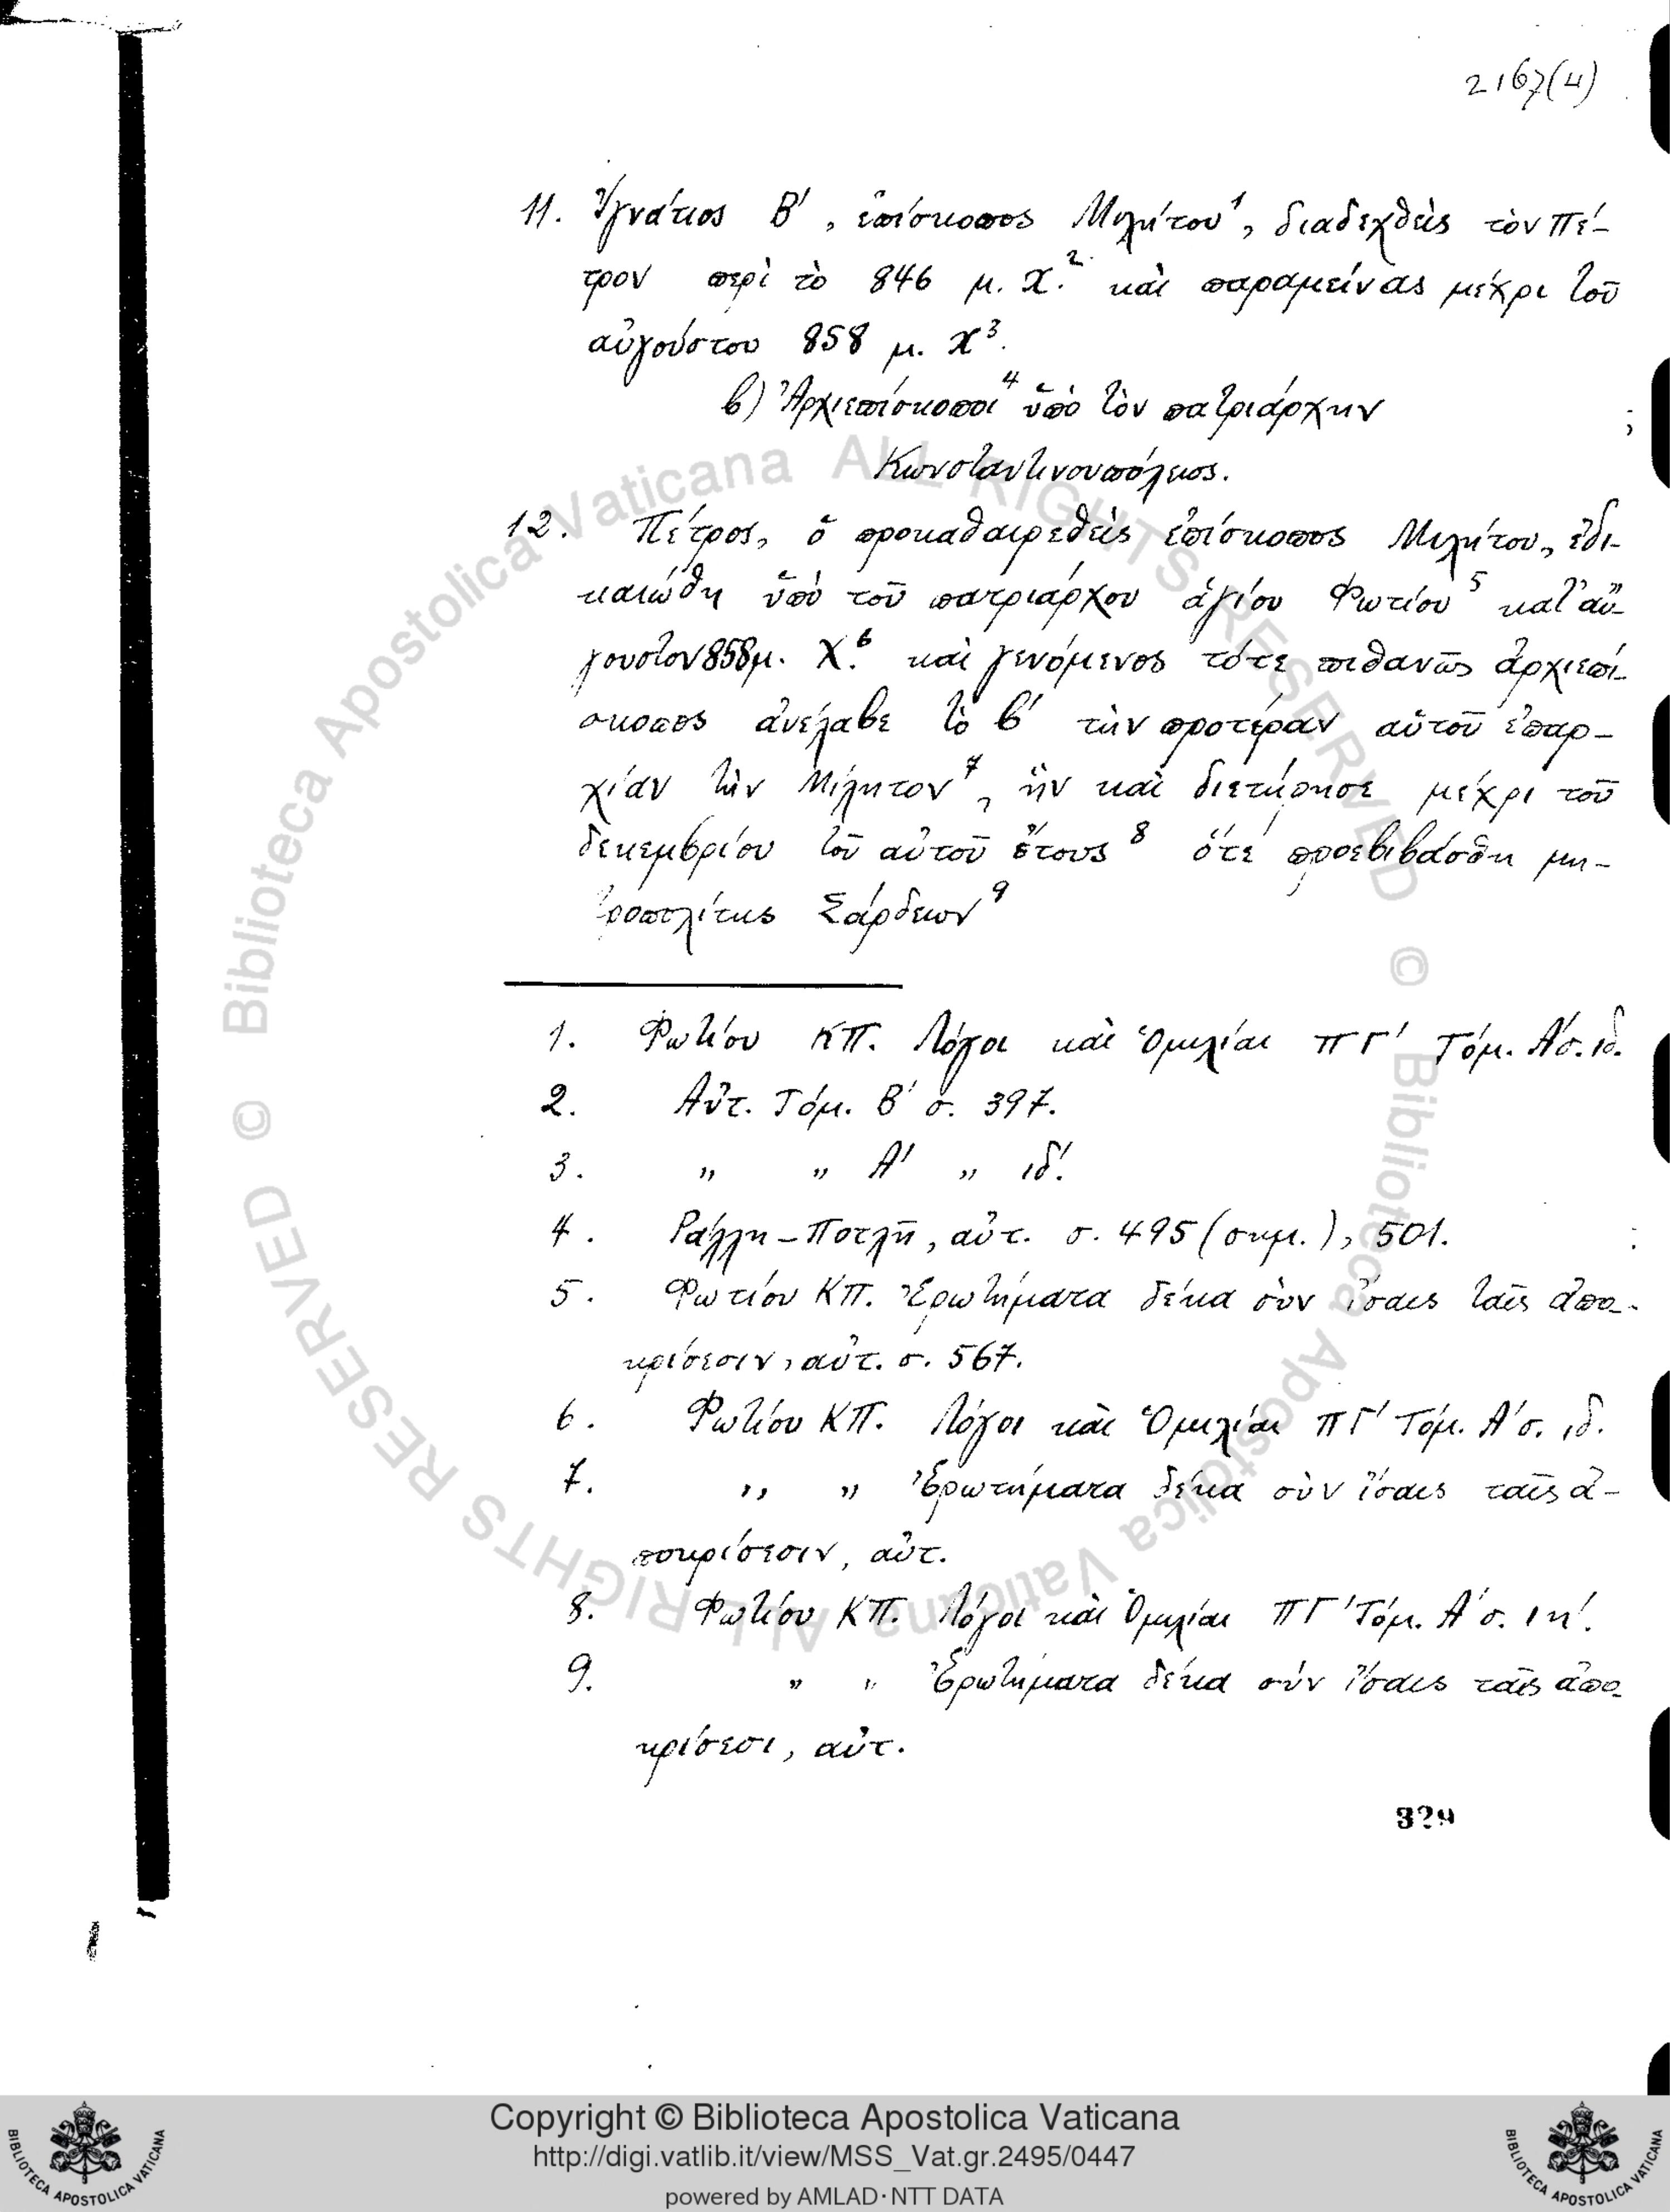 2167(4)
11. Ἰγνάτιος Β', ἐπίσκοπος Μιλήτου¹, διαδεχθεὶς τὸν Πέ-
τρον περὶ τὸ 846 μ. Χ.² καὶ παραμείνας μέχρι τοῦ
αὐγούστου 858 μ. Χ³.
β) Ἀρχιεπίσκοποι⁴ ὑπὸ τὸν πατριάρχην
Κωνσταντινουπόλεως.
12. Πέτρος, ὁ προκαθαιρεθεὶς ἐπίσκοπος Μιλήτου, ἐδι-
καιώθη ὑπὸ τοῦ πατριάρχου ἁγίου Φωτίου⁵ κατ' αὔ-
γουστον 858 μ. Χ.⁶ καὶ γενόμενος τότε πιθανῶς ἀρχιεπί-
σκοπος ἀνέλαβε τὸ β' τὴν προτέραν αὐτοῦ ἐπαρ-
χίαν τὴν Μίλητον⁷, ἣν καὶ διετήρησε μέχρι τοῦ
δεκεμβρίου τοῦ αὐτοῦ ἔτους⁸ ὅτε προεβιβάσθη μη-
τροπολίτης Σάρδεων⁹
1. Φωτίου ΚΠ. Λόγοι καὶ Ὁμιλίαι ΠΓ' Τόμ. Α' σ. ιδ.
2. Αὐτ. Τόμ. Β' σ. 397.
3. " " Α' " ιδ'.
4. Ράλλη-Ποτλῆ, αὐτ. σ. 495 (σημ.), 501.
5. Φωτίου ΚΠ. Ἐρωτήματα δέκα σὺν ἴσαις ταῖς ἀπο-
κρίσεσιν, αὐτ. σ. 567.
6. Φωτίου ΚΠ. Λόγοι καὶ Ὁμιλίαι ΠΓ' Τόμ. Α' σ. ιδ.
7. " " Ἐρωτήματα δέκα σὺν ἴσαις ταῖς ἀ-
ποκρίσεσιν, αὐτ.
8. Φωτίου ΚΠ. Λόγοι καὶ Ὁμιλίαι ΠΓ' Τόμ. Α' σ. ιη'.
9. " " Ἐρωτήματα δέκα σύν ἴσαις ταῖς ἀπο-
κρίσεσι, αὐτ.
329
© Biblioteca Apostolica Vaticana ALL RIGHTS RESERVED
© Biblioteca Apostolica Vaticana ALL RIGHTS RESERVED
Copyright © Biblioteca Apostolica Vaticana
http://digi.vatlib.it/view/MSS_Vat.gr.2495/0447
powered by AMLAD·NTT DATA
BIBLIOTECA APOSTOLICA VATICANA
BIBLIOTECA APOSTOLICA VATICANA